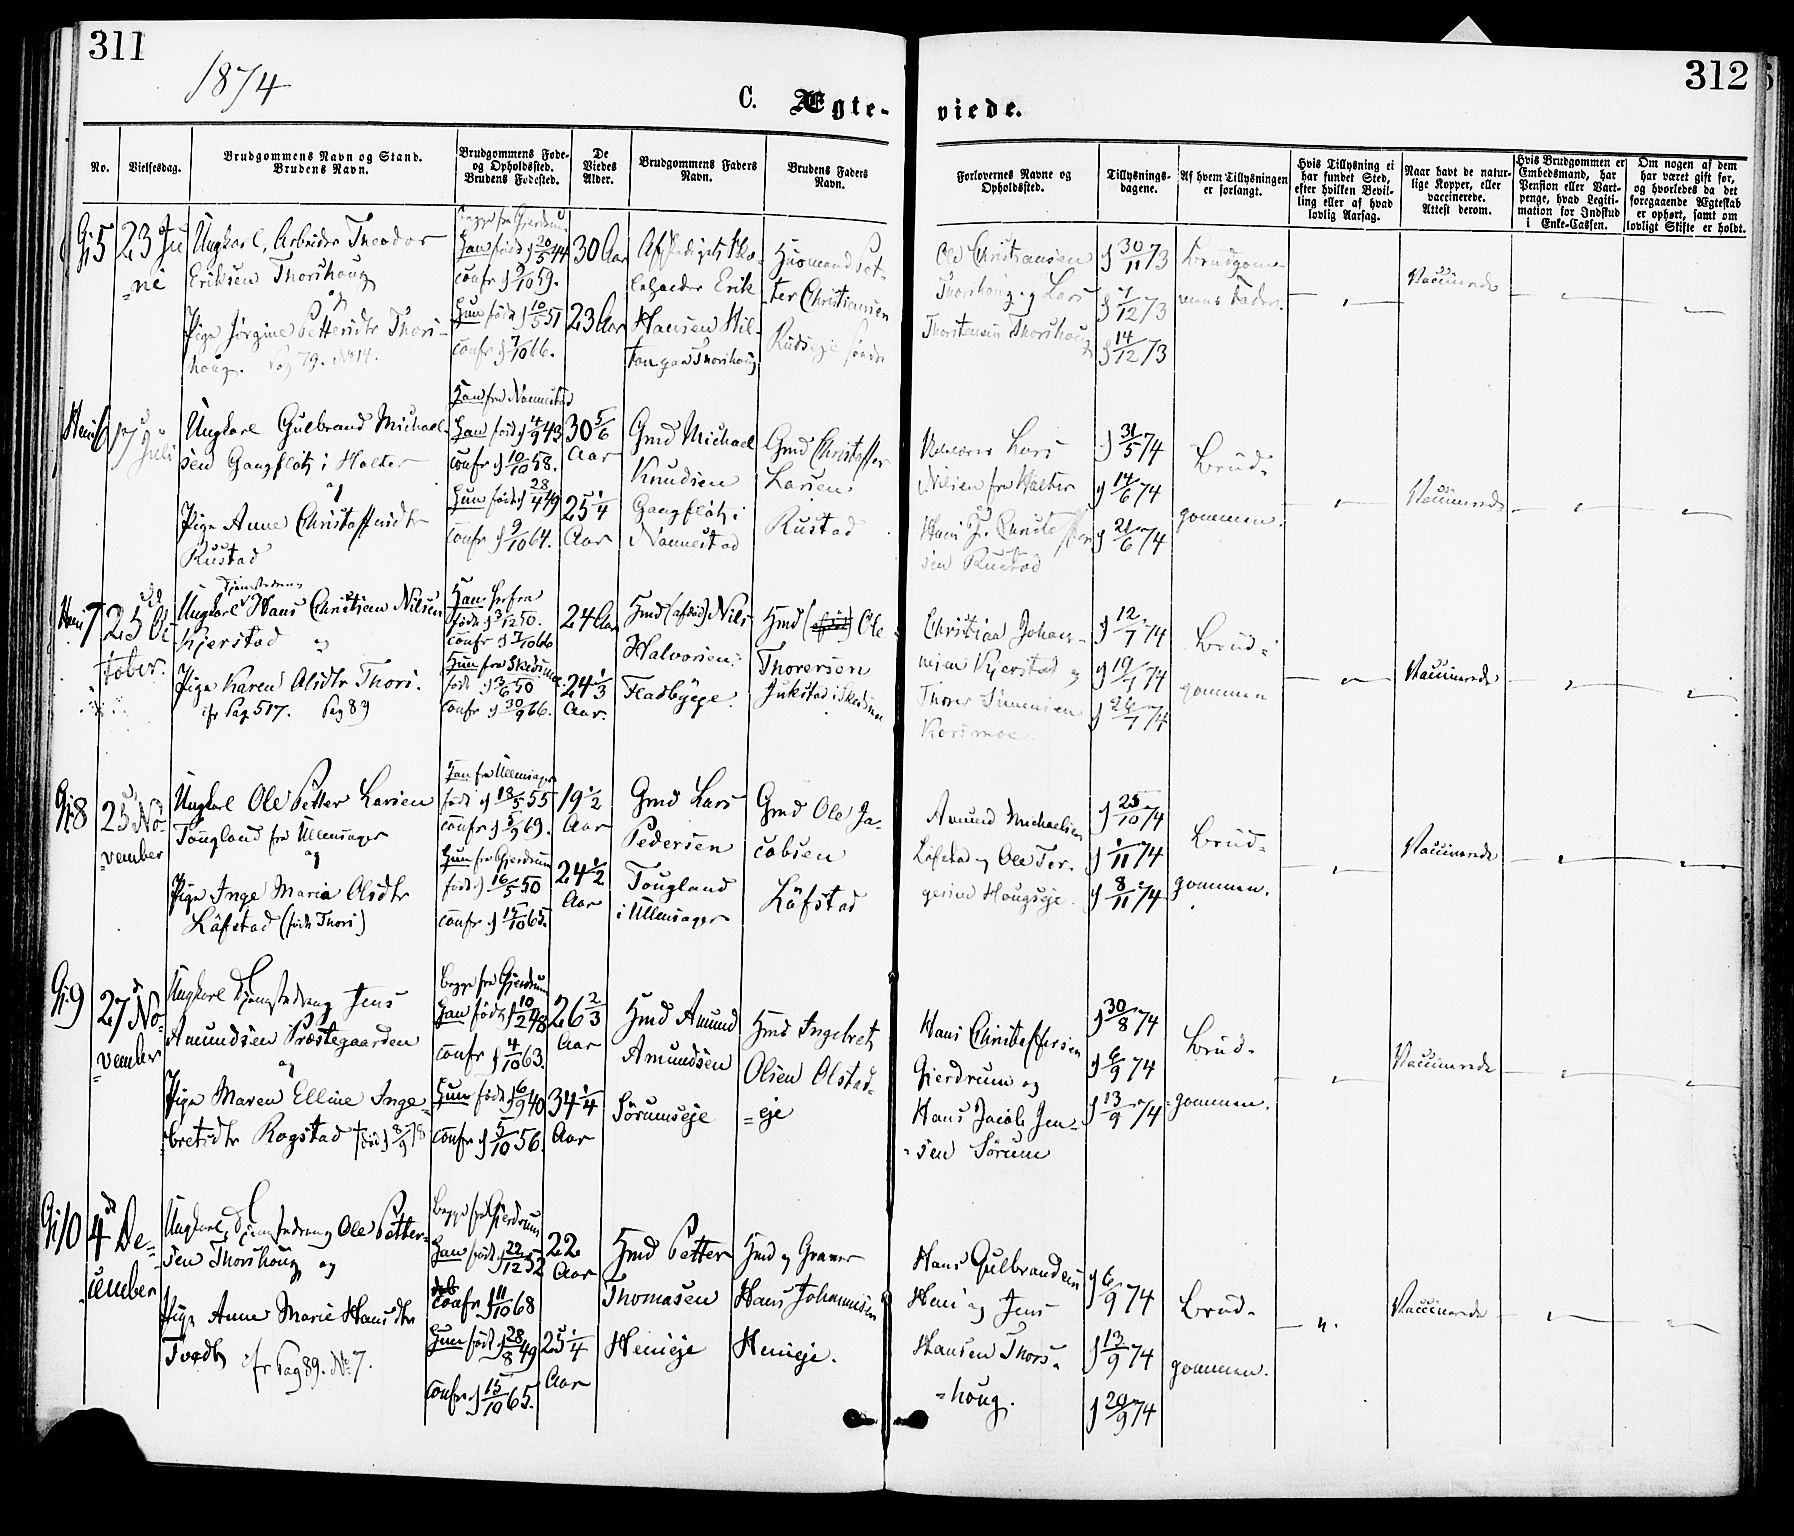 311
312
1874
C. Ægte-
viede.
No.
Vielsesdag.
Brudgommens Navn og Stand.
Brudens Navn.
Brudgommens Føde-
og Opholdssted.
Brudens Fødested.
De
Viedes
Alder.
Brudgommens Faders
Navn.
Brudens Faders
Navn.
Forlovernes Navne og
Opholdssted.
Tillysnings-
dagene.
Af hvem Tillysningen
er forlangt.
Hvis Tillysning ei
har fundet Sted,
efter hvilken Bevil-
ling eller af hvad
lovlig Aarsag.
Naar havt de natur-
lige Kopper, eller
vaccinerede.
Attest derom.
Hvis Brudgommen er
Embedsmand, har
Pension eller Vart-
penge, hvad Legiti-
mation for Indskud
i Enke-Cassen.
Om nogen af dem
har været gift før,
og hvorledes da det
foregaaende Ægteskab
er ophørt, samt om
lovligt Skifte er holdt.
Gj 5
23 Ju
=ni
Ungkarl, Arbeider Theodor
Eriksen Thorshoug
og
Pige Jørgine Pettersdtr Thors-
houg. Pag 79. No 14.
begge fra Gjerdrum
Han født d 20/5 44
conf d 9/10 59.
Hun født d 10/5 51
conf d 7/10 66.
30 Aar
23 Aar
Erik
Hansen Hil-
ton paa Thorshoug
Husmand Pet-
ter Christiansen
Rudseje søndre
Ole Christiansen
Thorshoug og Lars
Thorstensen Thorshoug
d 30/11 73
d 7/12 73
d 14/12 73
Brudgom-
mens Fader.
Vaccinerede
Heni 6
17 Juli
Ungkarl Gulbrand Michael-
sen Gangfløt i Holter
og
Pige Anne Christoffersdtr
Rustad
Han fra Nannestad
Han født d 4/9 43
conf d 10/10 58.
Hun født d 28/4 49
conf d 9/10 64.
30 5/6
Aar
25 1/4
Aar
Gmd Michael
Knudsen
Gangfløt i
Nannestad
Gmd Christoffer
Larsen
Rustad
Lars
Nilsen fra Holter
Hans J. Christoffer-
sen Rustad
d 31/5 74
d 14/6 74
d 21/6 74
Brud-
gommen.
Vaccinerede
Heni 7
25 Oc
tober.
Tjenestedreng
Ungkarl Hans Christian Nilsen
Kjerstad og
Pige Karen Olsdtr Thors.
cfr Pag 517. Pag 89
Han herfra
født d 3/12 50.
conf d 7/10 66
Hun fra Skedsmoe
født d 3/6 50
conf d 30/9 66.
24 Aar
24 1/3
Aar.
Hmd (afdød) Nils
Halvorsen
Fladbyeje.
Hmd Ole
Thoresen
Jukstad i Skedsmo
Christian Johan-
nesen Kjerstad og
Thorer Simensen
Korsmoe
d 12/7 74
d 19/7 74
d 26/7 74
Brud-
gommen
Vaccinerede
Gj 8
25 No-
vember
Ungkarl Ole Petter Larsen
Tougland fra Ullensager
og
Pige Inge Maria Olsdtr
Løfstad (født Thors)
Han fra Ullensager
født d 18/5 55
conf d 5/9 69.
Hun fra Gjerdrum
født d 16/5 50
conf d 15/10 65.
19 1/2
Aar
24 1/2
Aar
Gmd Lars
Pedersen
Tougland
i Ullensager
Gmd Ole Ja-
cobsen
Løfstad
Amund Michaelsen
Løfstad og Ole Tor-
gersen Hougseje.
d 25/10 74
d 1/11 74
d 8/11 74
Brud-
gommen.
Vaccinerede
Gj 9
27 No-
vember
Ungkarl Tjenestedreng Jens
Amundsen Præstegaarden
og
Pige Maren Elline Inge-
bretsdtr Rogstad
begge fra Gjerdrum
Han født d 10/2 48
conf d 4/10 63.
Hun født d 6/9 40
conf d 5/10 56.
26 2/3
Aar
34 1/4
Aar
Hmd Amund
Amundsen
Sørumseje
Hmd Ingebret
Olsen Olstad-
=eje
Hans Christoffersen
Gjerdrum og
Hans Jacob Jen-
=sen Sørum
d 30/8 74
d 6/9 74
d 13/9 74
Brud-
=gommen.
Vaccinerede
Gj 10
4 De-
cember
Ungkarl, Tjenestedreng Ole Petter-
sen Thorshoug og
Pige Anne Marie Hansdtr
Tvedt cfr Pag 89. No 7.
begge fra Gjerdrum
Han født d 22/12 52
conf d 11/10 68
Hun født d 28/8 49
conf d 15/10 65.
22
Aar
25 1/4
Aar
Hmd Petter
Thomasen
Henieje
Hmd og Graver
Hans Johannesen
Henieje.
Hans Gulbrandsen
Heni og Jens
Hansen Thors-
=houg.
d 6/9 74
d 13/9 74
d 20/9 74
Brud-
gommen.
Vaccinerede